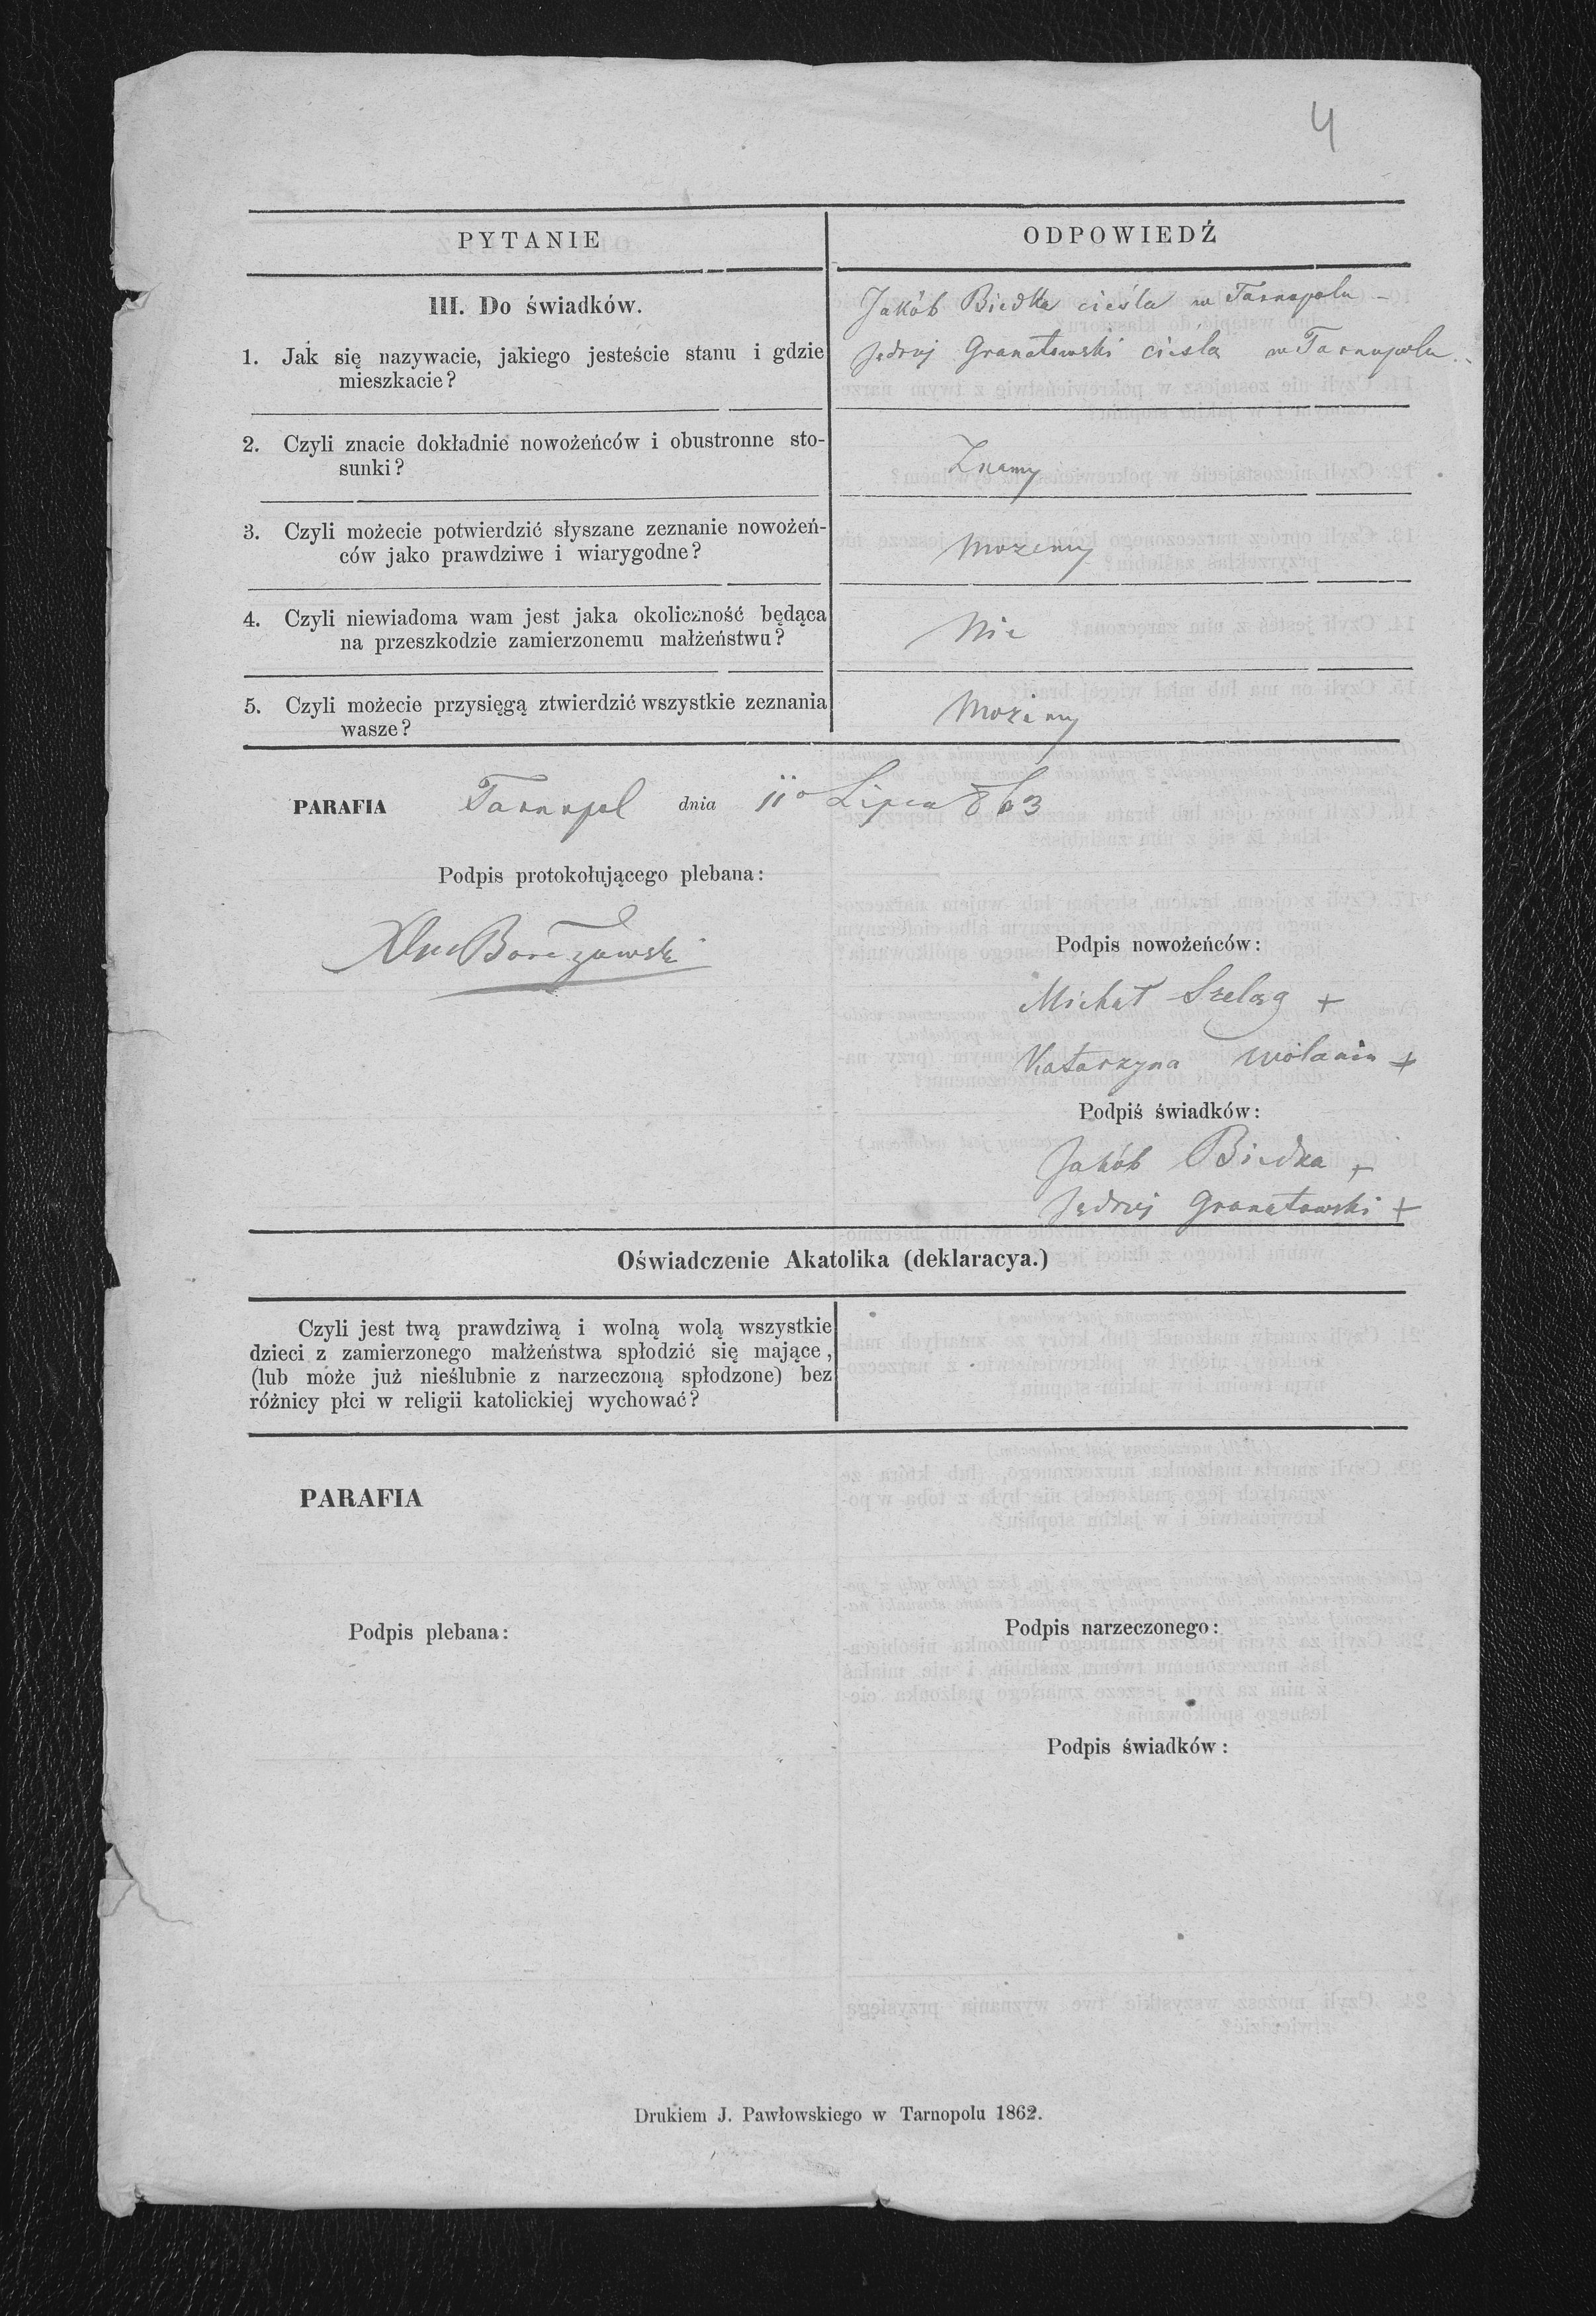 4
PYTANIE
ODPOWIEDŹ
III. Do świadków.
1. Jak się nazywacie, jakiego jesteście stanu i gdzie
mieszkacie?
Jakób Biedka cieśla w Tarnopolu
Jędrzj Granatowski cieśla w Tarnopolu
2. Czyli znacie dokładnie nowożeńców i obustronne sto-
sunki?
Znamy
3. Czyli możecie potwierdzić słyszane zeznanie nowożeń-
ców jako prawdziwe i wiarygodne?
Możemy
4. Czyli niewiadoma wam jest jaka okoliczność będąca
na przeszkodzie zamierzonemu małżeństwu?
Nie
5. Czyli możecie przysięgą ztwierdzić wszystkie zeznania
wasze?
Możemy
PARAFIA Tarnopol dnia 11o Lipca 863
Podpis protokołującego plebana:
Podpis nowożeńców:
Michał Szeląg +
Katarzyna Wolanin +
Podpiś świadków:
Jakób Biedka +
Jędrzj Granatowski +
Oświadczenie Akatolika (deklaracya.)
Czyli jest twą prawdziwą i wolną wolą wszystkie
dzieci z zamierzonego małżeństwa spłodzić się mające,
(lub może już nieślubnie z narzeczoną spłodzone) bez
różnicy płci w religii katolickiej wychować?
PARAFIA
Podpis plebana:
Podpis narzeczonego:
Podpis świadków:
Drukiem J. Pawłowskiego w Tarnopolu 1862.